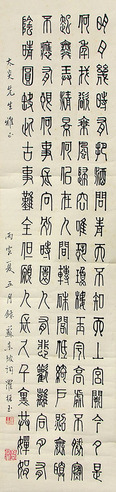 明月幾時有把酒問青天不知天上宮闕今夕是
何年我欲乘風歸去惟恐瓊樓玉宇高處不勝寒
起舞弄清影何似在人間轉朱閣低綺戶照無眠
不應有恨何事長向別時圓人有悲歡離合月有
陰晴圓缺此事古難全但願人長久千里共嬋娟
先生雅正
丙寅夏五月錄蘇東坡詞羅振玉